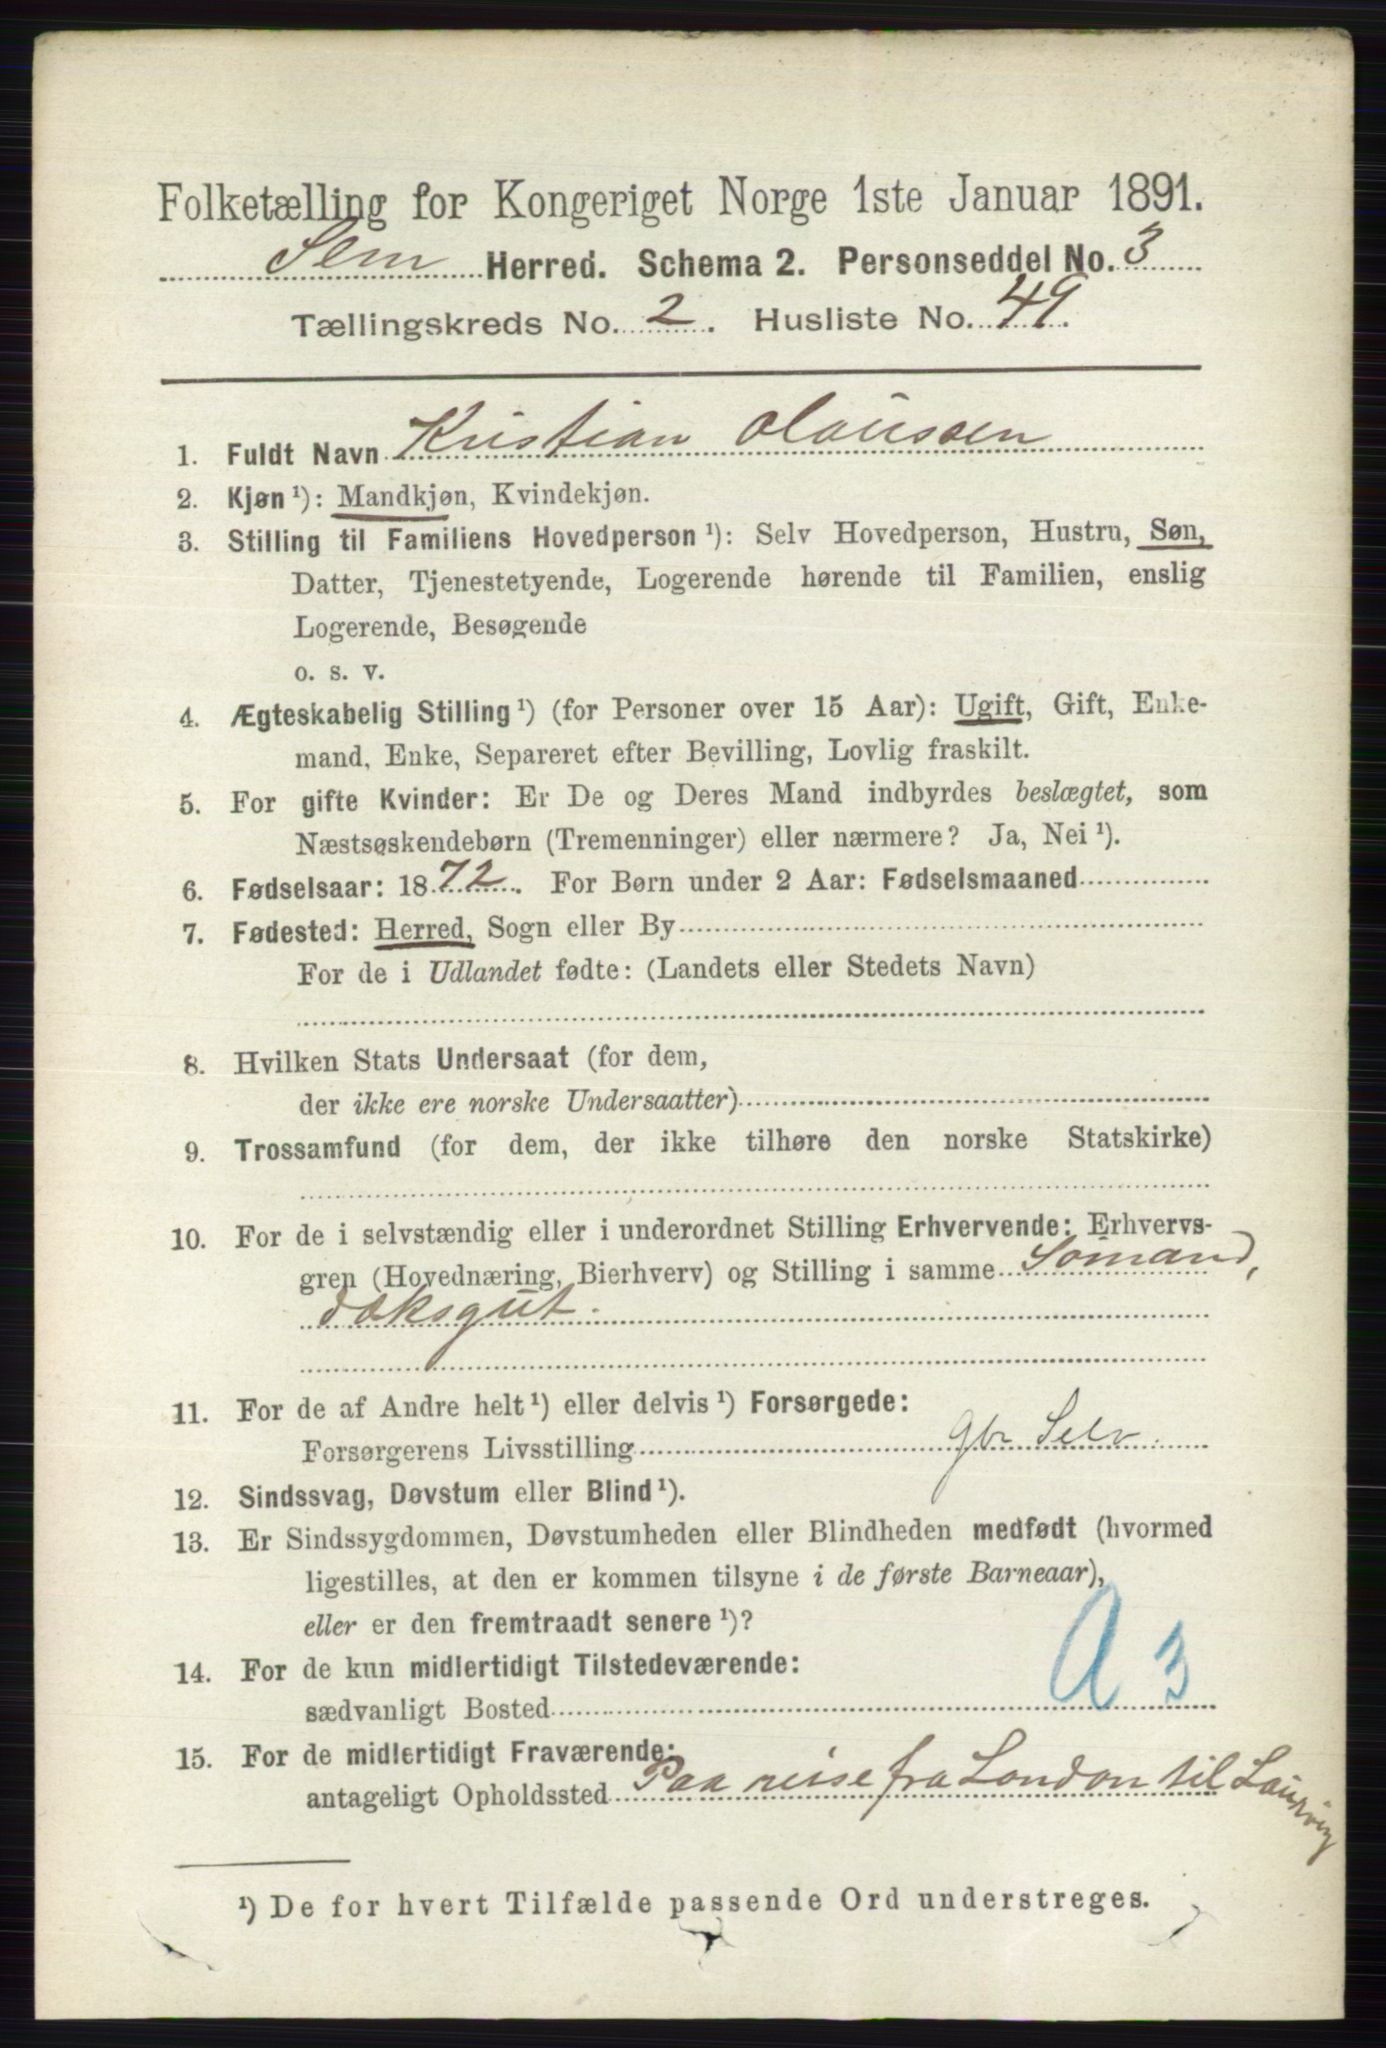 Folketælling for Kongeriget Norge 1ste Januar 1891.
Sem Herred. Schema 2. Personseddel No. 3
Tællingskreds No. 2. Husliste No. 49.
1. Fuldt Navn Kristian Olaussen
2. Kjøn ¹): Mandkjøn, Kvindekjøn.
3. Stilling til Familiens Hovedperson ¹): Selv Hovedperson, Hustru, Søn,
Datter, Tjenestetyende, Logerende hørende til Familien, enslig
Logerende, Besøgende
o. s. v.
4. Ægteskabelig Stilling ¹) (for Personer over 15 Aar): Ugift, Gift, Enke-
mand, Enke, Separeret efter Bevilling, Lovlig fraskilt.
5. For gifte Kvinder: Er De og Deres Mand indbyrdes beslægtet, som
Næstsøskendebørn (Tremenninger) eller nærmere? Ja, Nei ¹).
6. Fødselsaar: 1872. For Børn under 2 Aar: Fødselsmaaned
7. Fødested: Herred, Sogn eller By
For de i Udlandet fødte: (Landets eller Stedets Navn)
8. Hvilken Stats Undersaat (for dem,
der ikke ere norske Undersaatter)
9. Trossamfund (for dem, der ikke tilhøre den norske Statskirke)
10. For de i selvstændig eller i underordnet Stilling Erhvervende: Erhvervs-
gren (Hovednæring, Bierhverv) og Stilling i samme Sømand,
dæksgut.
11. For de af Andre helt ¹) eller delvis ¹) Forsørgede:
Forsørgerens Livsstilling Gbr Selv.
12. Sindssvag, Døvstum eller Blind ¹).
13. Er Sindssygdommen, Døvstumheden eller Blindheden medfødt (hvormed
ligestilles, at den er kommen tilsyne i de første Barneaar),
eller er den fremtraadt senere ¹)?
A 3
14. For de kun midlertidigt Tilstedeværende:
sædvanligt Bosted
15. For de midlertidigt Fraværende:
antageligt Opholdssted Paa reise fra London til Laurvig
¹) De for hvert Tilfælde passende Ord understreges.